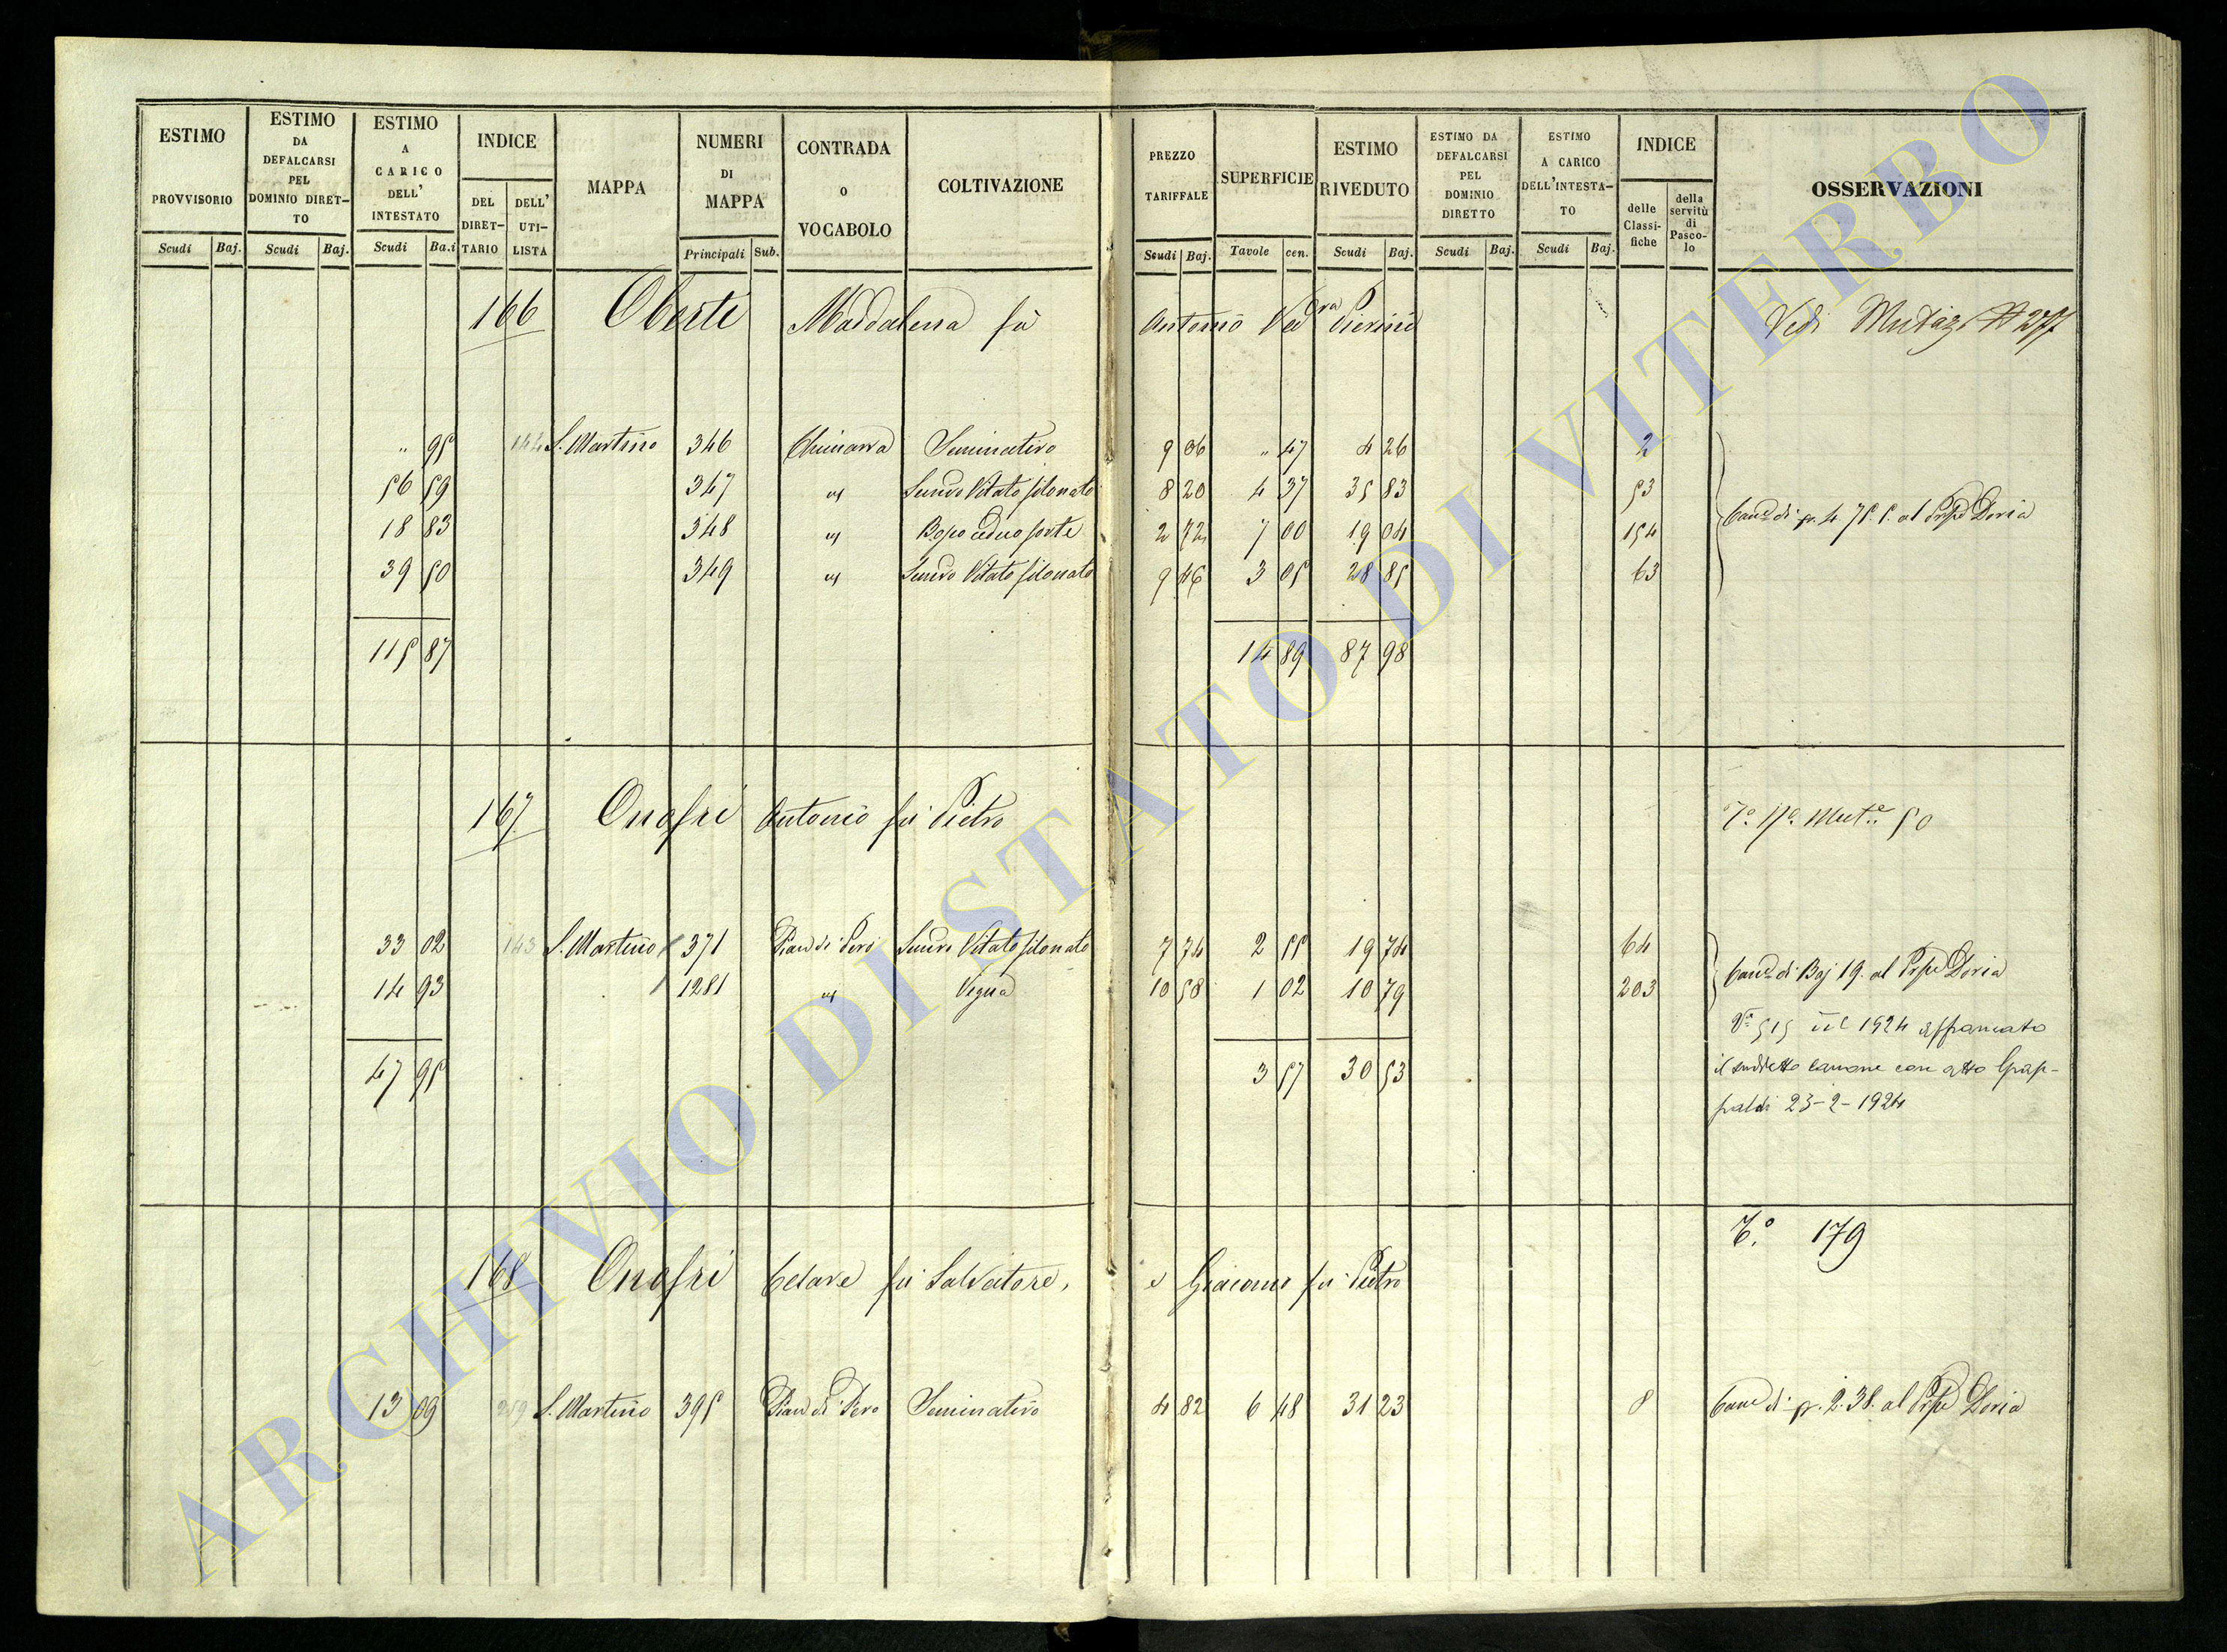 ESTIMO PROVVISORIO | ESTIMO DA DEFALCARSI PEL DOMINIO DIRETTO | ESTIMO A CARICO DELL' INTESTATO | INDICE DEL DIRETTARIO | DELL' UTILISTA | MAPPA | NUMERI DI MAPPA | CONTRADA O VOCABOLO | COLTIVAZIONE | PREZZO TARIFFALE | SUPERFICIE | ESTIMO RIVEDUTO | ESTIMO DA DEFALCARSI PEL DOMINIO DIRETTO | ESTIMO A CARICO DELL'INTESTATO | INDICE delle Classifiche | della servitù di Pascolo | OSSERVAZIONI
Scudi Baj. Scudi Baj. Scudi Ba.i Principali Sub. Scudi Baj. Tavole cen. Scudi Baj. Scudi Baj. Scudi Baj.
166 Oberti Maddalena fù Antonio Ved.va Pierini Vedi Mutaz. N 277
" 95 144 S. Martino 346 Seminativo 9 06 " 47 4 26 2
56 59 347 " Semvo Vitato filonato 8 20 4 37 35 83 53
18 83 348 " Bosco ceduo forte 2 72 7 00 19 04 154 Cane di sc. 4 75. 5. al Prpe Doria
39 50 349 " Semvo Vitato filonato 9 46 3 05 28 85 63
115 87 14 89 87 98
167 Onofri Antonio fù Pietro 50
33 02 143 S. Martino 371 Pian di Pero Semvo Vitato filonato 7 74 2 55 19 74 64
14 93 1281 " Vigna 10 58 1 02 10 79 203 Cane di Baj 19. al Prpe Doria
515 1924 affrancato
47 95 3 57 30 53 il suddetto canone con atto Grap-
paldi 23-2-1924
179
168 Onofri Cesare fù Salvatore, e Giacomo fù Pietro
13 09 259 S. Martino 395 Pian di Pero Seminativo 4 82 6 48 31 23 8 Cane di sc. 2. 38. al Prpe Doria
ARCHIVIO DI STATO DI VITERBO